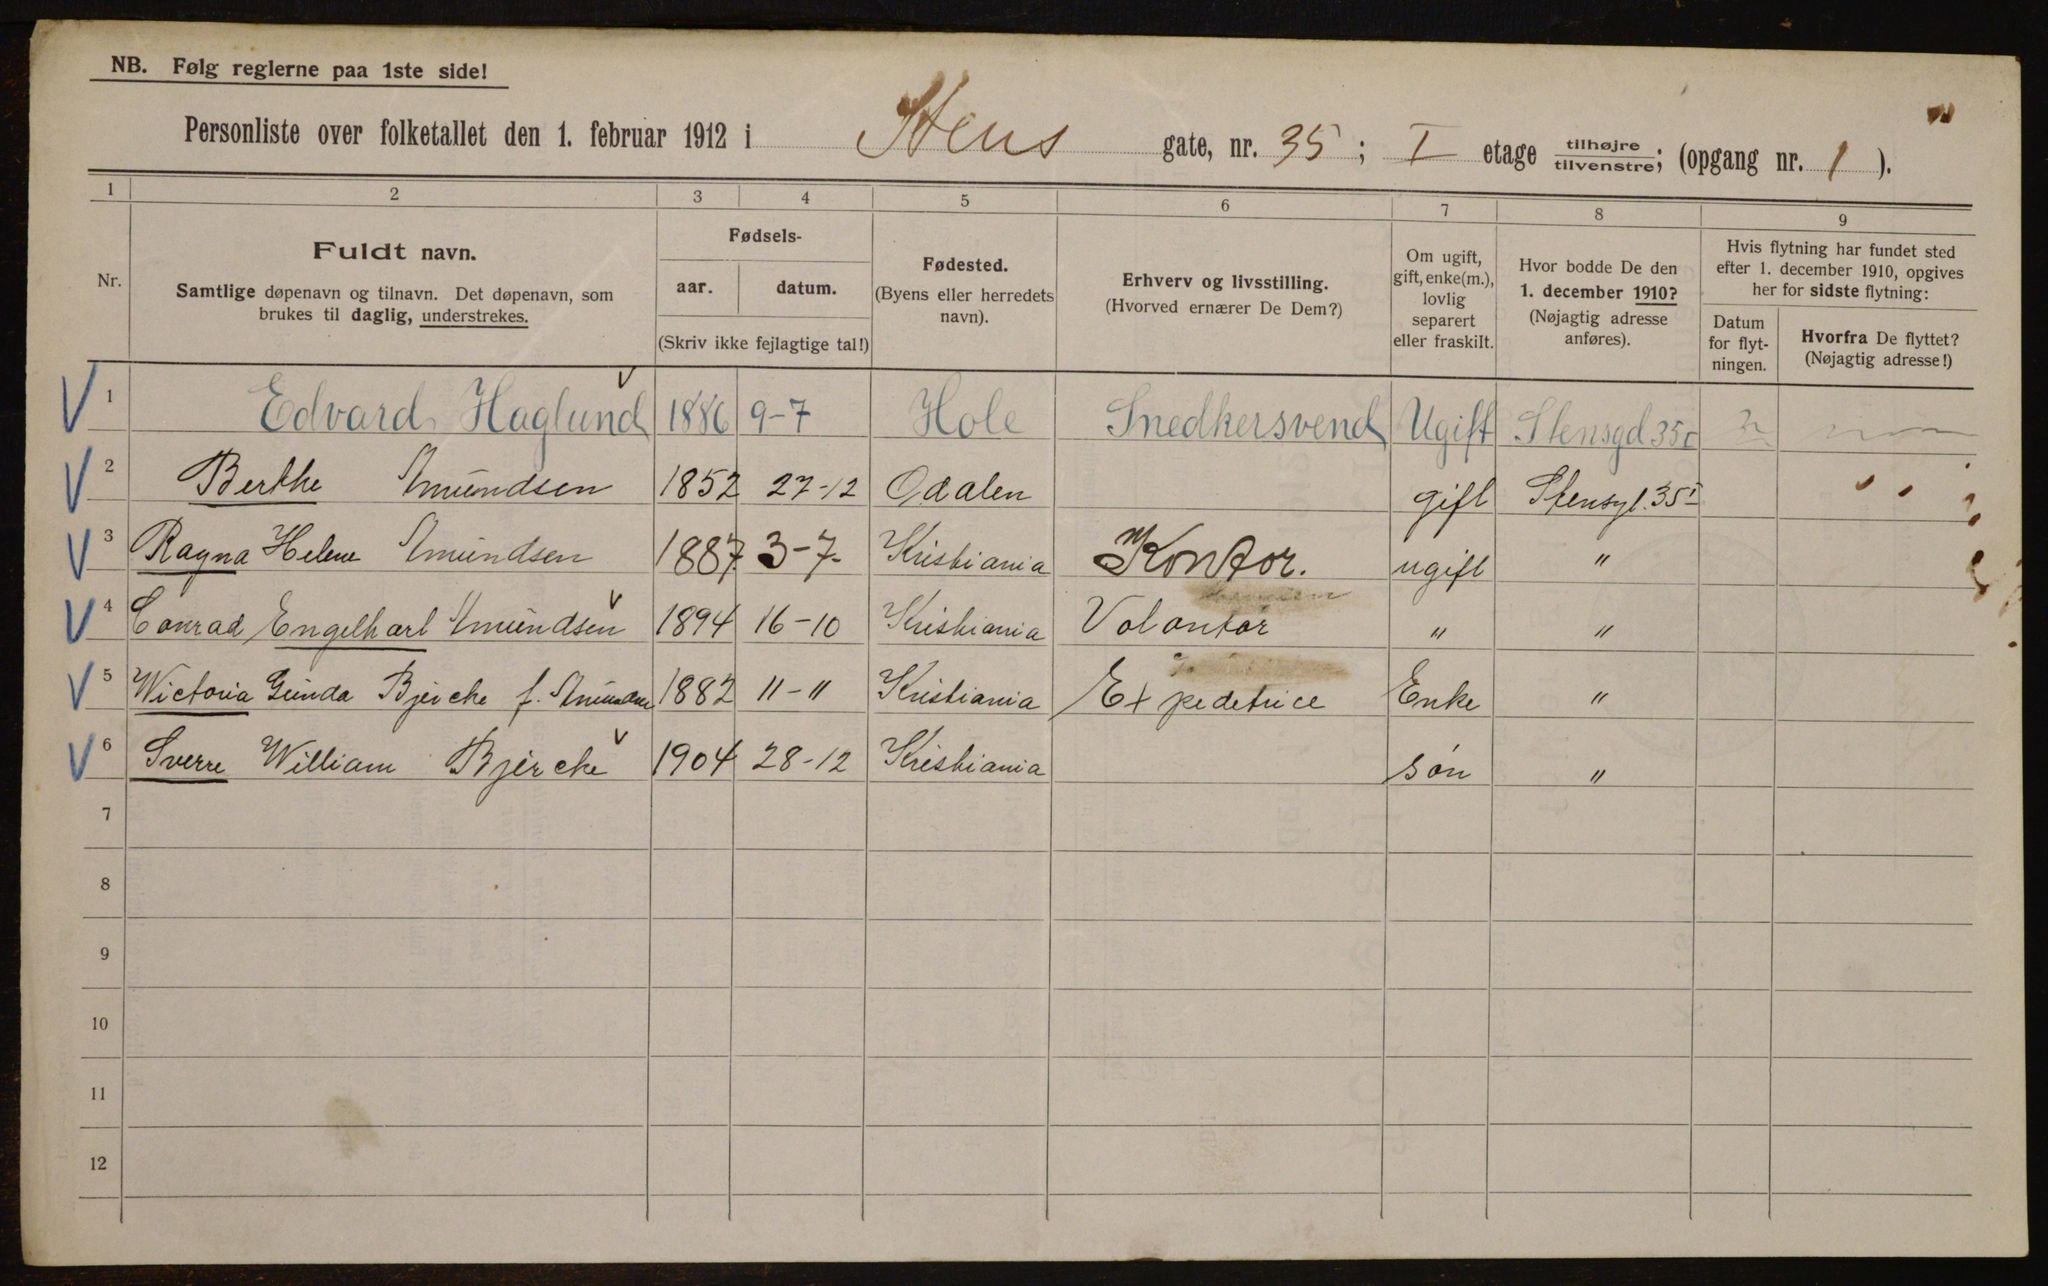 NB. Følg reglerne paa 1ste side!
Personliste over folketallet den 1. februar 1912 i Stens gate, nr. 35; I etage tilhøjre tilvenstre; (opgang nr. 1).
1 2 3 4 5 6 7 8 9
Nr.
Fuldt navn.
Samtlige døpenavn og tilnavn. Det døpenavn, som
brukes til daglig, understrekes.
Fødsels-
aar. datum.
(Skriv ikke fejlagtige tal!)
Fødested.
(Byens eller herredets
navn).
Erhverv og livsstilling.
(Hvorved ernærer De Dem?)
Om ugift,
gift, enke(m.),
lovlig
separert
eller fraskilt.
Hvor bodde De den
1. december 1910?
(Nøjagtig adresse
anføres).
Hvis flytning har fundet sted
efter 1. december 1910, opgives
her for sidste flytning:
Datum
for flyt-
ningen.
Hvorfra De flyttet?
(Nøjagtig adresse!)
1 Edvard Haglund 1886 9-7 Hole Snedkersvend Ugift Stensgd 35c
2 Berthe Amundsen 1852 27-12 Odalen gift Stensgt. 35 I
3 Ragna Helene Amundsen 1887 3-7- Kristiania Kontor. ugift "
4 Conrad Engelhart Amundsen 1894 16-10 Kristiania Volontør " "
5 Wictoria Gunda Bjercke f. Amundsen 1882 11-11 Kristiania Expedetrice Enke "
6 Sverre William Bjercke 1904 28-12 Kristiania søn "
7
8
9
10
11
12